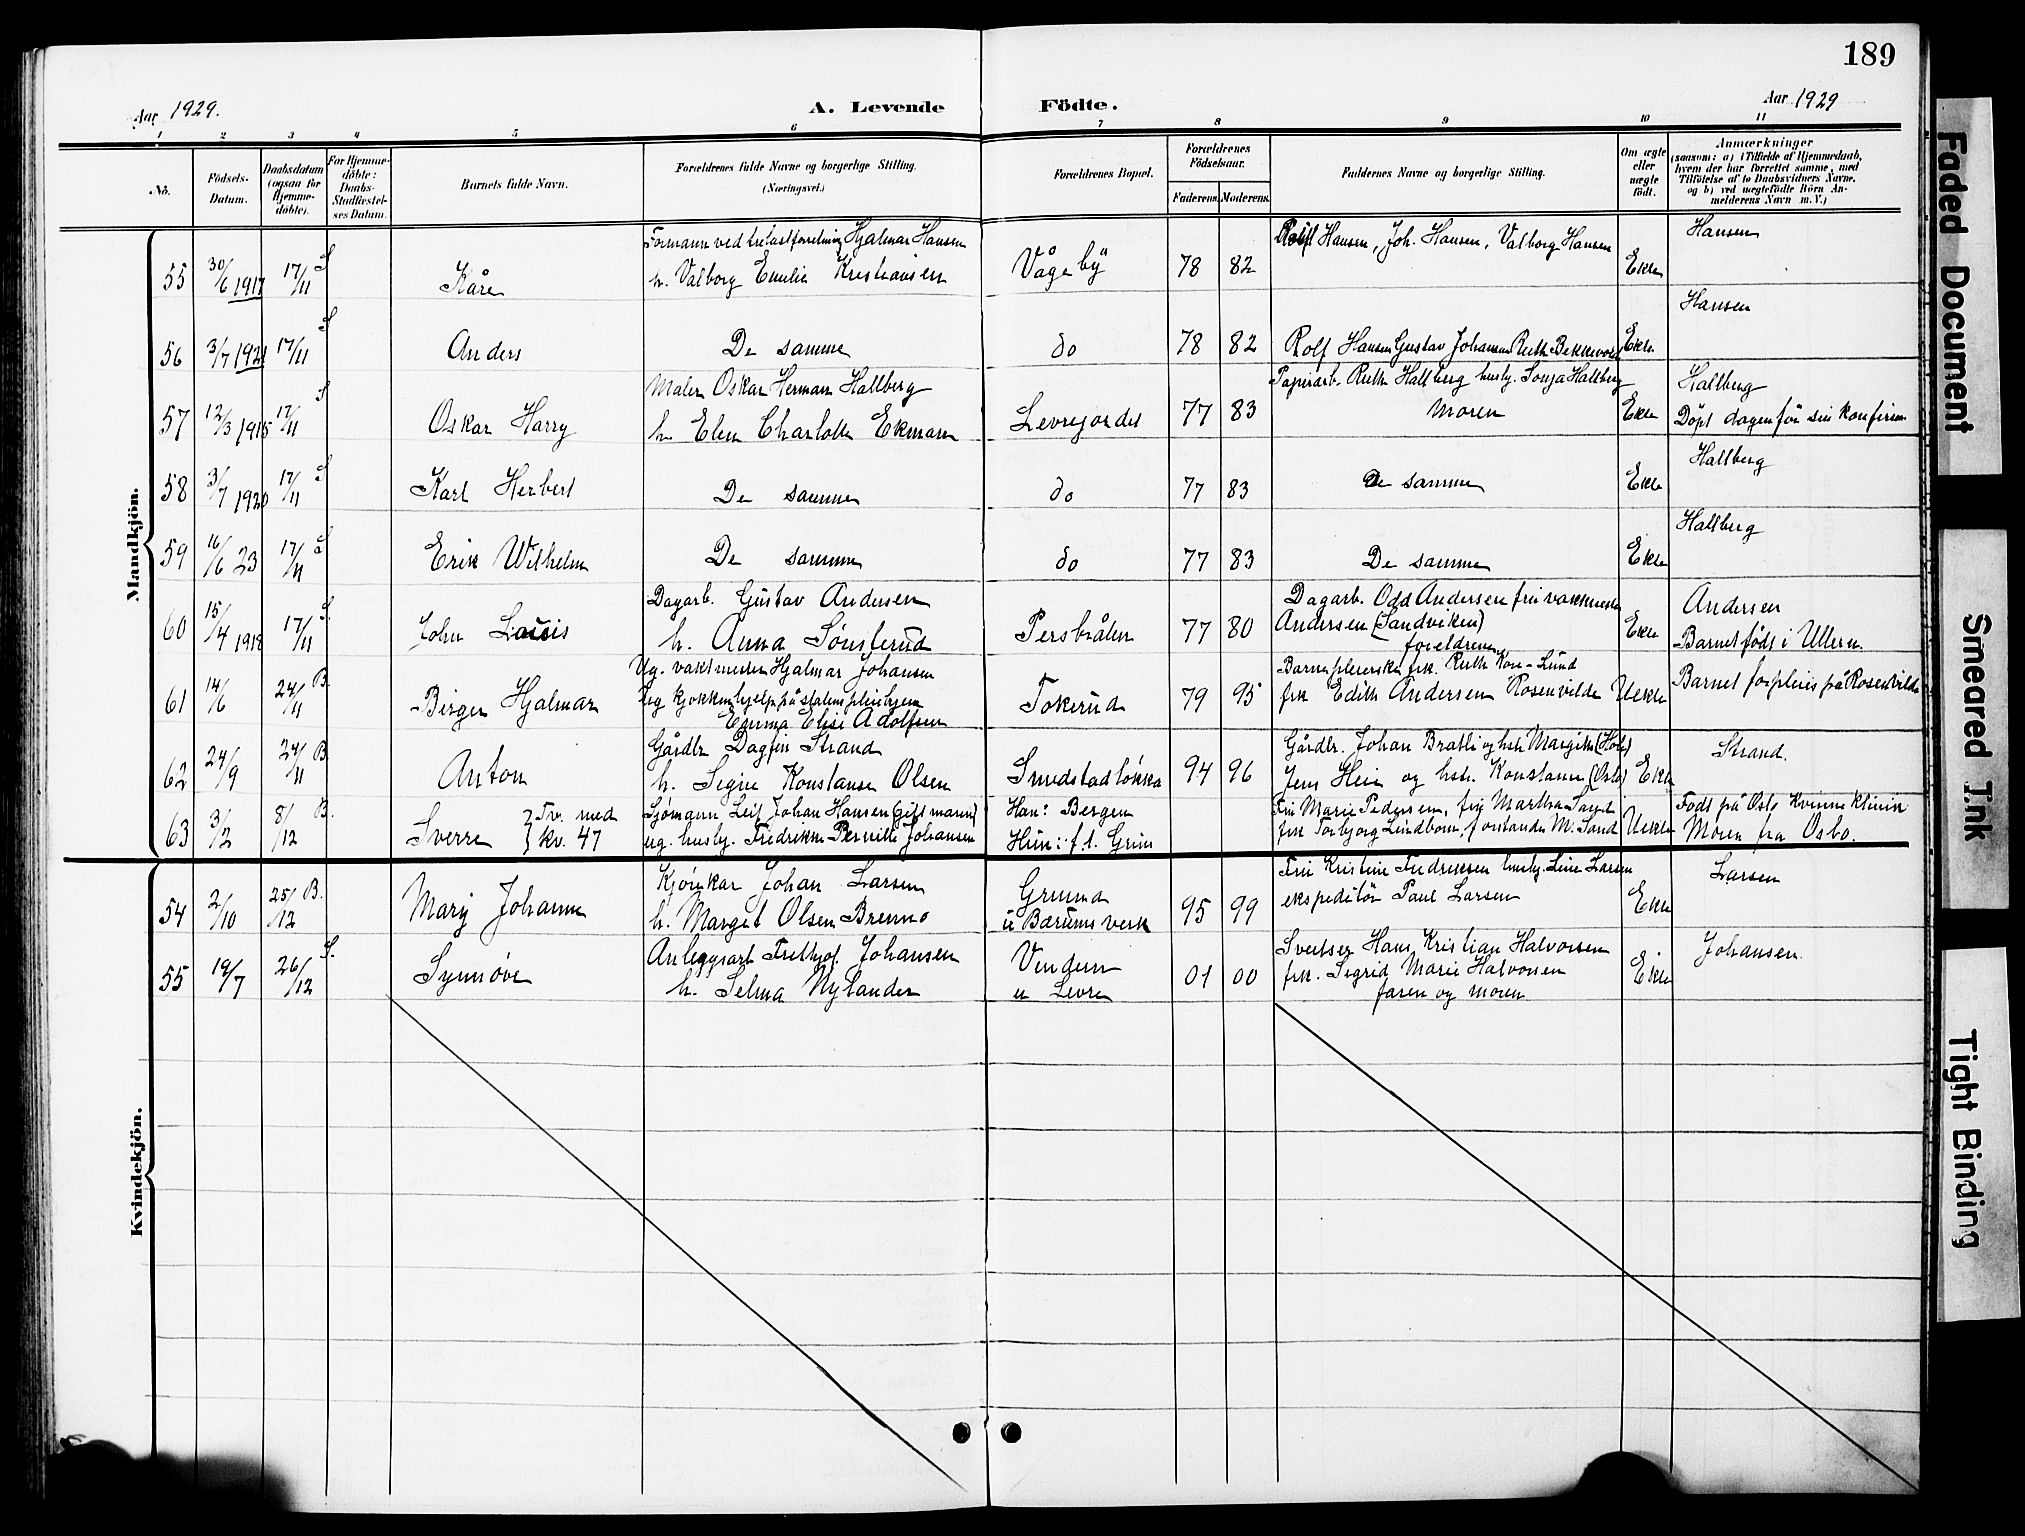 189
Aar 1929.
A. Levende
Födte.
Aar 1929
1 2 3 4 5 6 7 8 9 10 11
No.
Födsels-Datum.
Daabsdatum (ogsaa for Hjemme-döbte).
For Hjemme-döbte: Daabs-Stadfæstel-ses Datum.
Barnets fulde Navn.
Forældrenes fulde Navne og borgerlige Stilling. (Næringsvei.)
Forældrenes Bopæl.
Forældrenes Födselsaar.
Faderens. Moderens.
Faddernes Navne og borgerlige Stilling.
Om ægte eller uægte födt.
Anmærkninger
(saasom: a) i Tilfælde af Hjemmedaab, hvem der har forrettet samme, med Tilföielse af to Daabsvidners Navne, og b) ved uægtefödte Börn Anmelderens Navn m. V.)
Mandkjön.
55 30/6 1917 17/11 S Kåre
Formann ved trelastforretning Hjalmar Hansen
h. Valborg Emilie Kristiansen
Vågeby 78 82
Rolf Hansen, Joh. Hansen, Valborg Hansen
Ekte Hansen
56 3/7 1921 17/11 S Anders De samme do 78 82 Rolf Hansen Gustav Johansen Ruth Bekkevold Ekte Hansen
57 12/3 1915 17/11 S Oskar Harry
Maler Oskar Herman Hallberg
h. Elen Charlotte Ekmann
Levrejordet 77 83
Papirarb. Ruth Hallberg husby. Sonja Hallberg
Moren
Ekte Hallberg
Döpt dagen för sin konfirm
58 3/7 1920 17/11 S Karl Herbert De samme do 77 83 De samme Ekte Hallberg
59 16/6 23 17/11 S Erik Wilhelm De samme do 77 83 De samme Ekte Hallberg
60 15/4 1918 17/11 S. John Louis
Dagarb. Gustav Andersen
h. Anna Sønsterud
Persbråten 77 80
Dagarb. Odd Andersen fru vaktmester
Andersen (Sandviken)
foreldrene
Ekte Andersen
Barnet föds i Ullern.
61 14/6 24/11 B. Birger Hjalmar
Ug. vaktmester Hjalmar Johansen
ug kjøkkenhjelp på statens pleiehjem
Emma Elise Adolfsen
Tokerud 79 95
Barnepleierske frk. Ruth Lund
frk Edith Andersen Rosenvilde
Uekte Barnet forpleies på Rosenvilde
62 24/9 24/11 B Anton
Gårdbr Dagfin Strand
h. Signe Konstanse Olsen
Smedstadløkka 94 96
Gårdbr. Johan Bratli og hstr Margith (Hole)
Jens Heie og hstr. Konstanse (Oslo)
Ekte Strand.
63 3/2 8/12 B. Sverre } Tv. med kv. 47
Sjømann Leif Johan Hansen (gift mann)
ug. husby. Fredrikke Pernille Johansen
Han: Bergen
Hun: f. t. Grini
Fru Marie Pedersen, fru Martha Sand
frk Torbjorg Lindbom, forstander M. Sand
Uekte Födt på Oslo Kvinneklinik
Moren fra Osbo.
Kvindekjön.
54 2/10 25/12 B. Mary Johanne
Kjørekar Johan Larsen
h. Margit Olsen Brenno
Grinna
u Bærums verk 95 99
Fru Kristine Fredriksen husby. Line Larsen
ekspeditör Paul Larsen
Ekte Larsen
55 19/7 26/12 S. Synnöve
Anleggsarb Frithjof Johansen
h. Selma Nylander
Vindern
u Levre 01 00
Sveitser Hans Kristian Halvorsen
frk. Sigrid Marie Halvorsen
faren og moren
Ekte Johansen.
Faded Document
Smeared Ink
Tight Binding